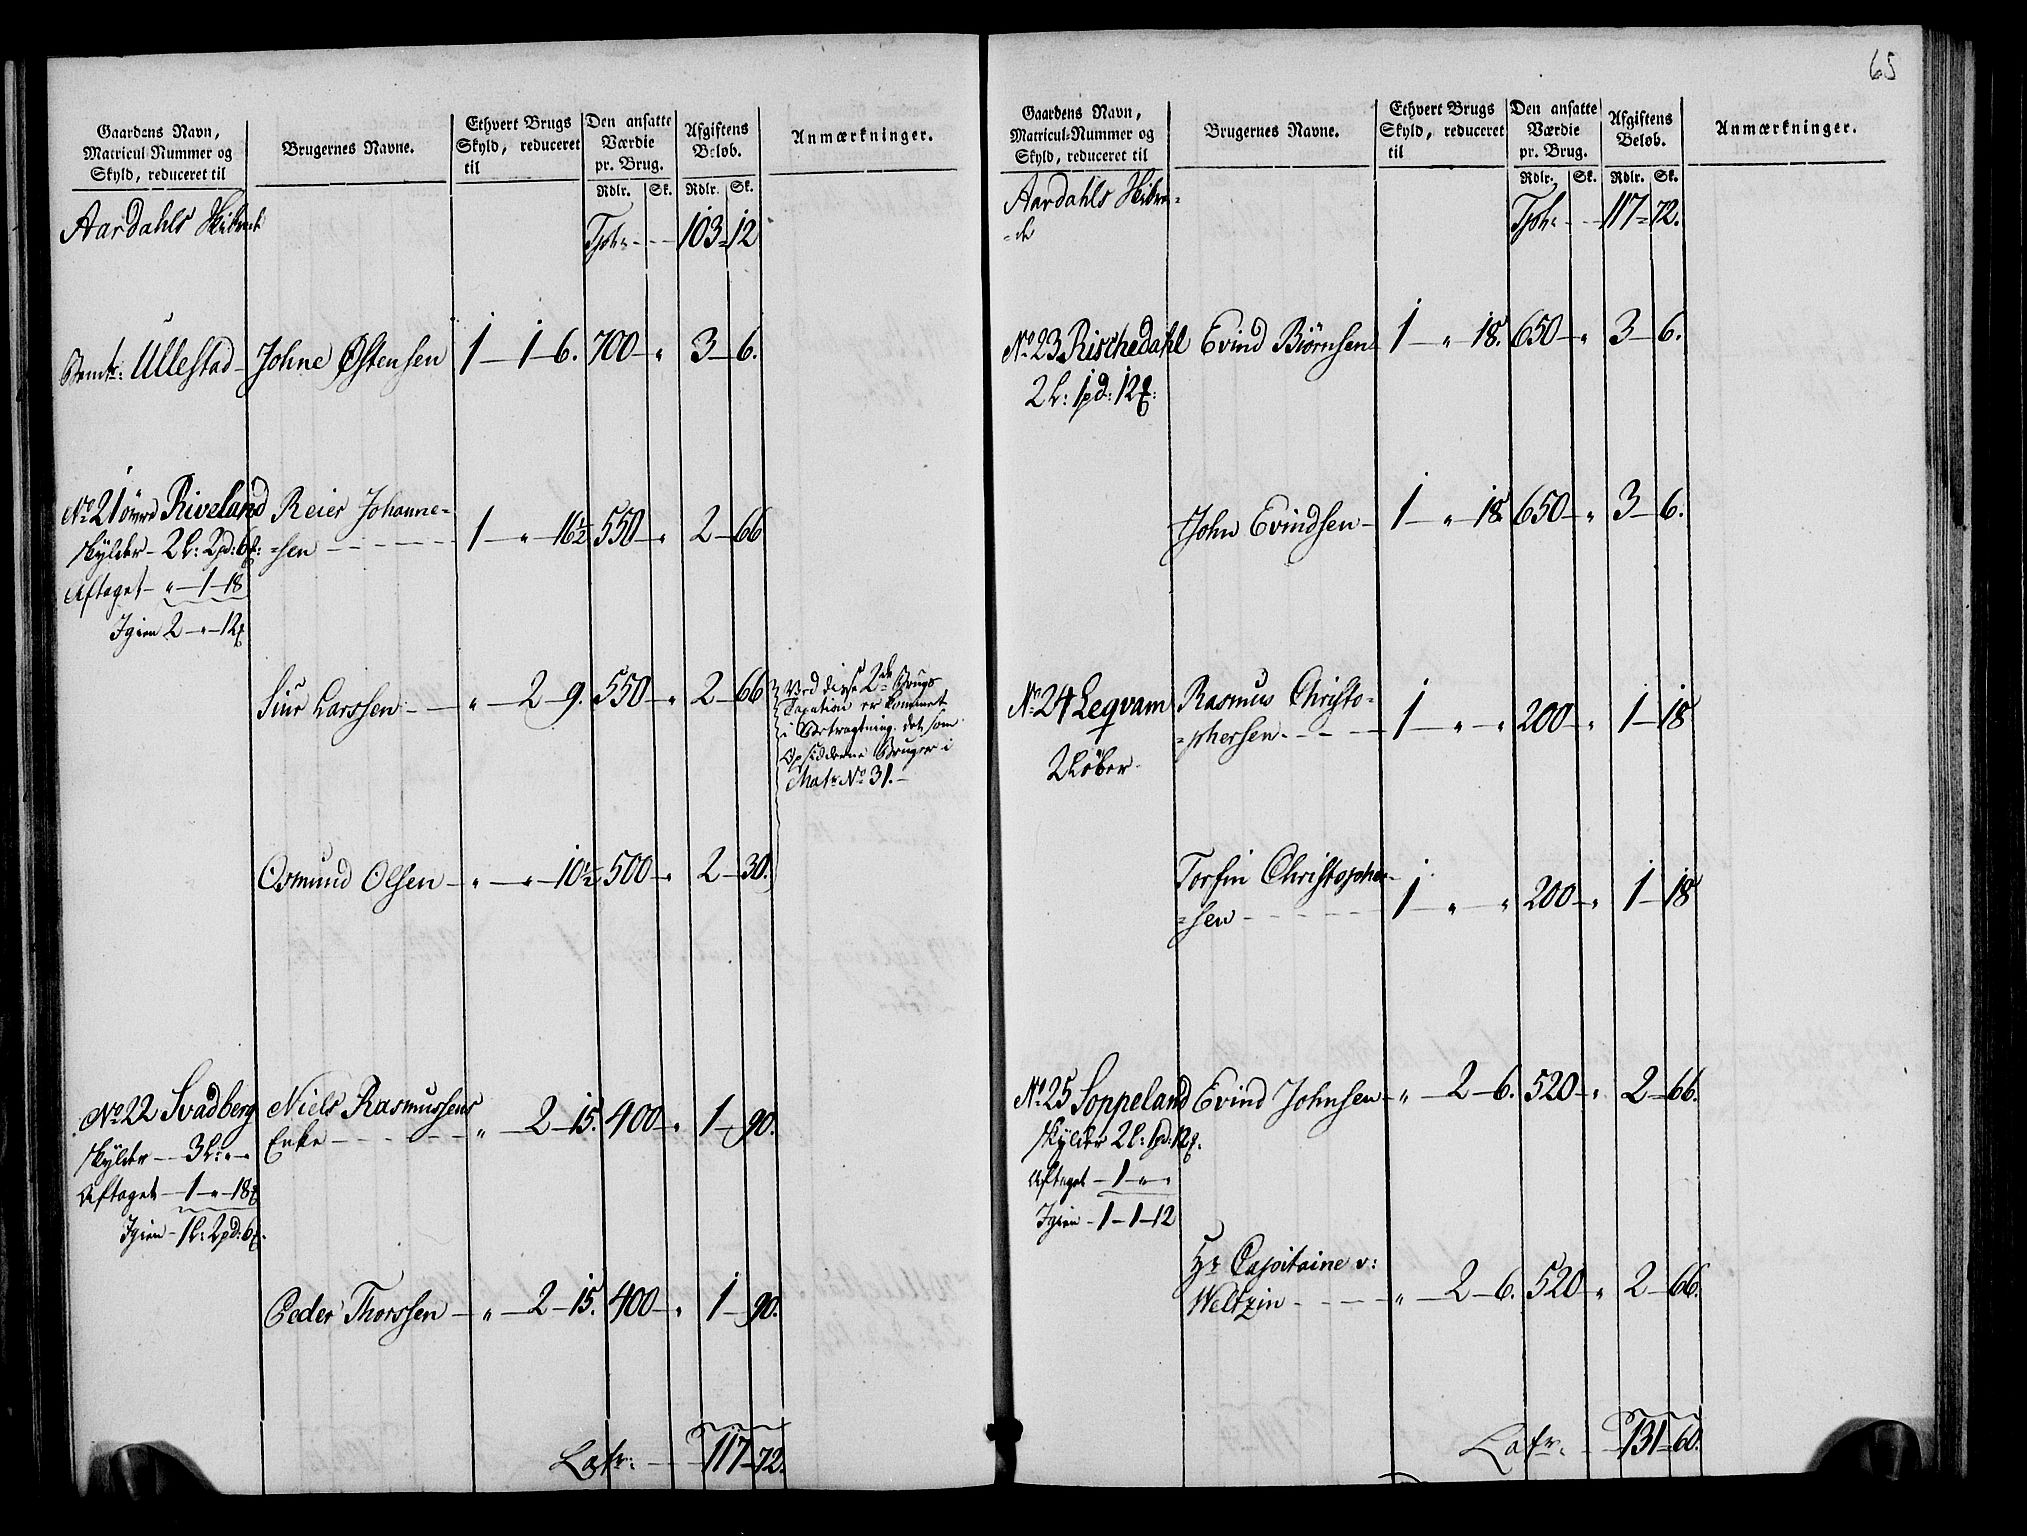 Gaardens Navn,
Matricul-Nummer og
Skyld, reduceret til
Brugernes Navne.
Ethvert Brugs
Skyld, reduceret
til
Den ansatte
Værdie
pr. Brug.
Rdlr. Sk.
Afgiftens
Beløb.
Rdlr. Sk.
Anmærkninger.
Aardahls Skibrede
Tsph: - - - 103 - 12
Bemte: Ullestad - Johne Østensen 1 - 1 - 6. 700 - " 3 - 6.
No 21 øvre Riveland Reier Johanne-
skylder - 2 L: 2 pd: 6 f: =sen - - - 1 - " - 16½ 550 - " 2 - 66
Aftaget - " - 1 - 18
Igien 2 - " - 12 f
Siur Larssen - - " - 2 - 9. 550 - " 2 - 66
Ved disse 2de Brugs
Taxation er kommet
i Betragtning det, som
Opsidderne Bruger i
Matr. No 31. -
Osmund Olsen - " - " - 10½ 500 - " 2 - 30.
No 22 Svadberg Niels Rasmussens
Enke - - - " - 2 - 15. 400 - " 1 - 90.
skylder - 3 L: " - "
Aftaget - 1 - " - 18 f
Igien - 1 L: 2 pd: 6 f.
Peder Thorssen - " - 2 - 15. 400 - " 1 - 90.
Latr: - - 117 - 72.
65
Gaardens Navn,
Matricul-Nummer og
Skyld, reduceret til
Brugernes Navne.
Ethvert Brugs
Skyld, reduceret
til
Den ansatte
Værdie
pr. Brug.
Rdlr. Sk.
Afgiftens
Beløb.
Rdlr. Sk.
Anmærkninger.
Aardahls Skibre=
=de
Tsph: - - - 117 - 72.
No 23 Rischedahl Evind Biørnsen 1 - " - 18. 650 - " 3 - 6.
2 L: 1 pd: 12 f:
John Evindsen - 1 - " - 18. 650 - " 3 - 6.
No 24 Leqvam Rasmus Christo=
=phersen - - - 1 - " - " 200 - " 1 - 18
2 Løber
Torfin Christopher-
=sen - - - 1 - " - " 200 - " 1 - 18
No 25 Soppeland Evind Johnsen - " - 2 - 6. 520 - " 2 - 66.
skylder 2 L: 1 pd: 12 f.
Aftaget - 1 - " - "
Igien - 1 - 1 - 12
Hr Capitaine v:
Weltzin - - - " - 2 - 6. 520 - " 2 - 66.
Latr. - - 131 - 60.